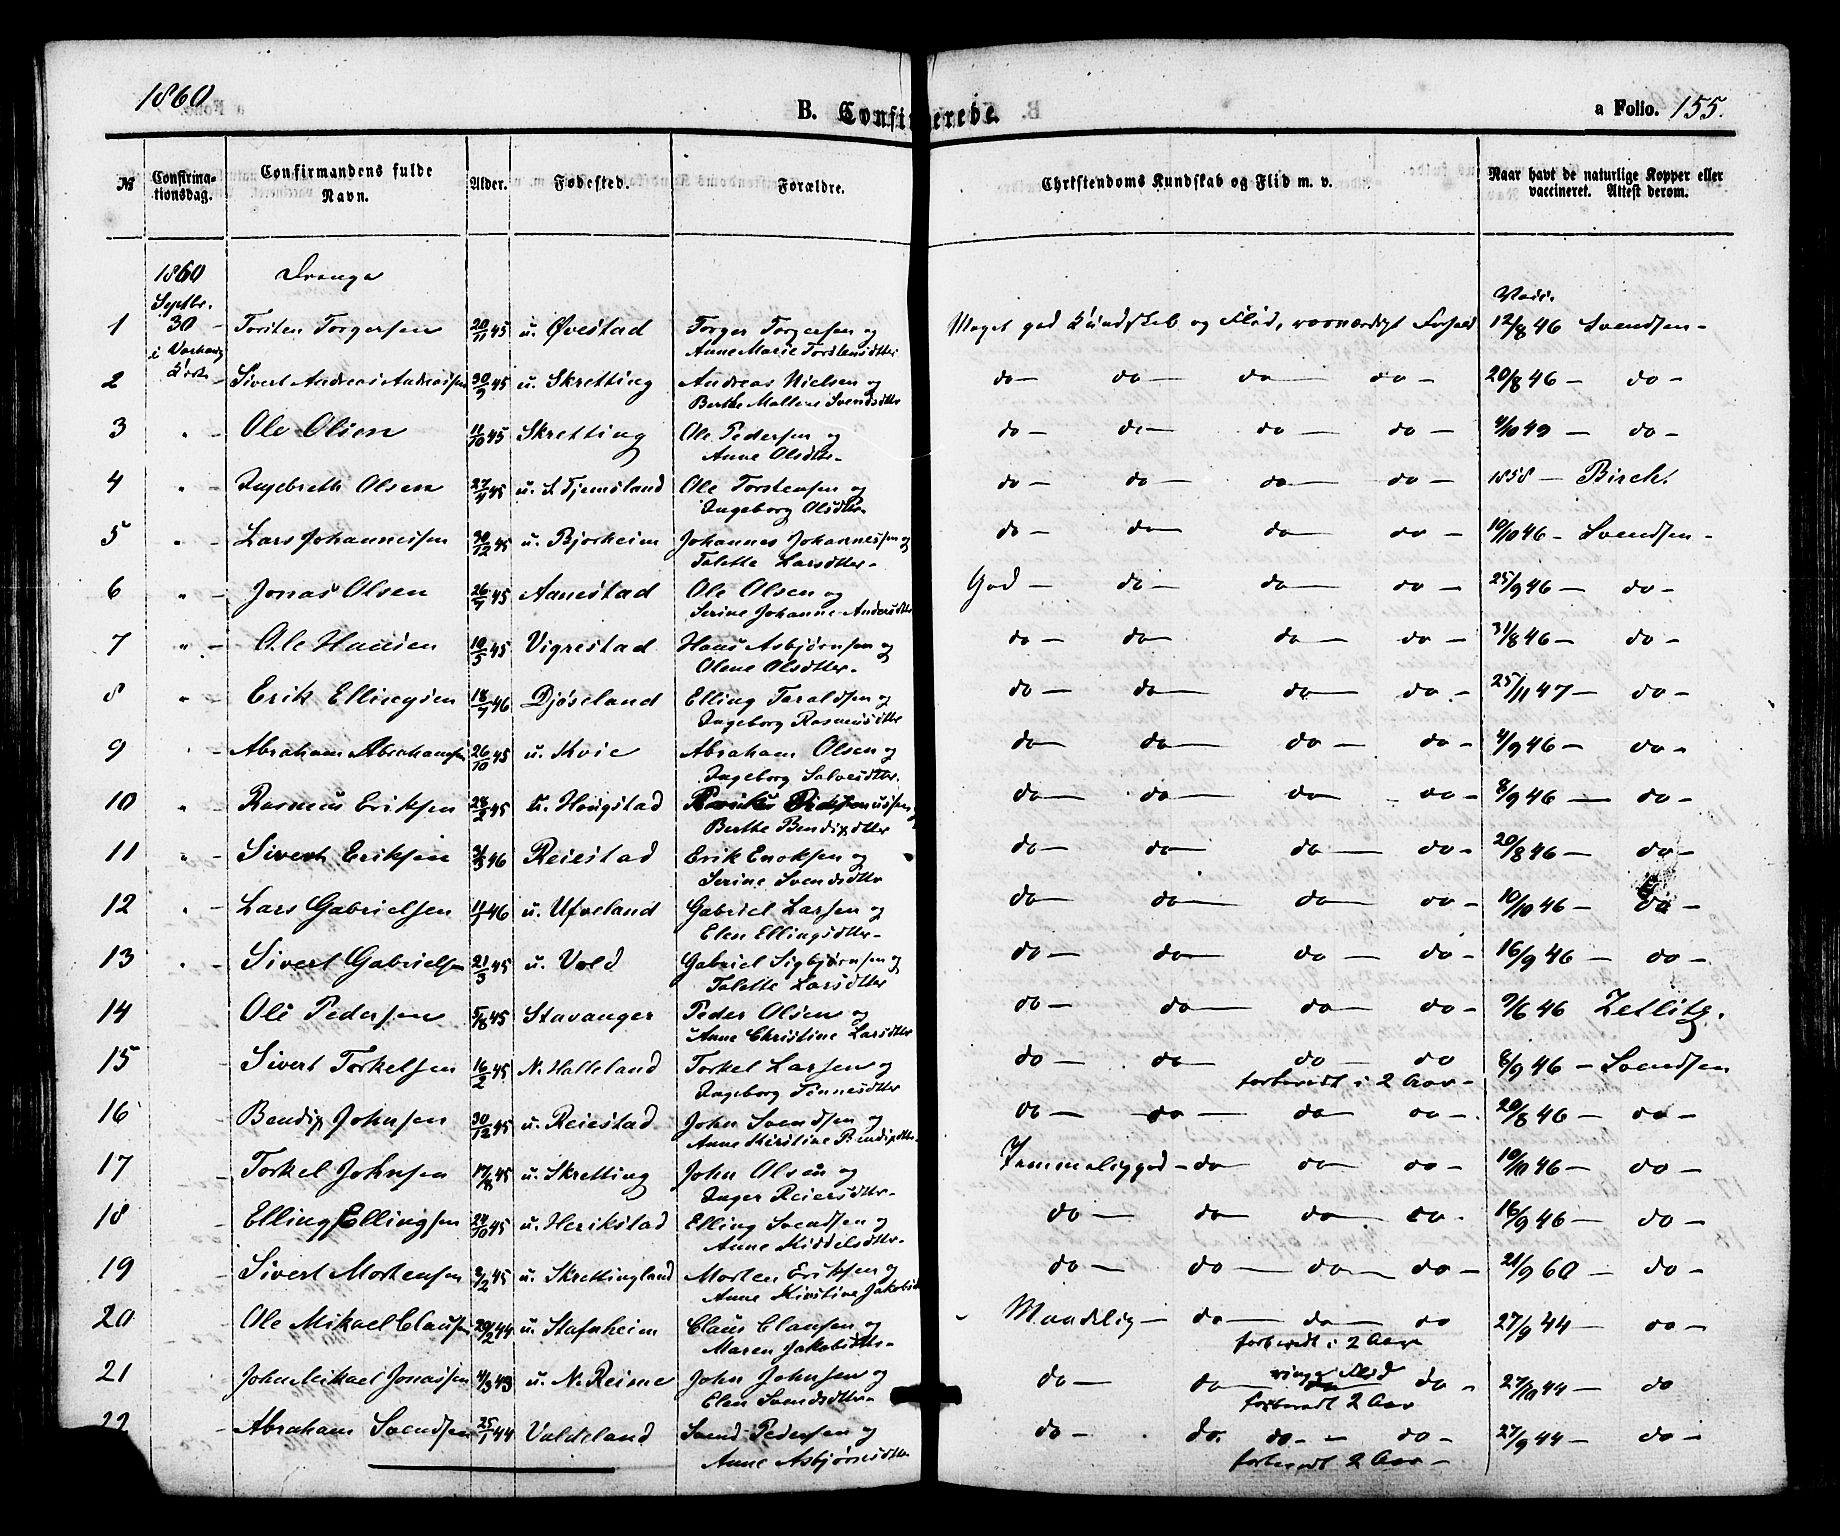 1860
B. Confirmerede.
a Folio. 155.
№ Confirma- Confirmandens fulde Alder. Fødested. Forældre. Christendoms Kundskab og Flid m. v. Naar havt de naturlige Kopper eller
tionsdag. Navn. vaccineret. Attest derom.
1860 Drenge
Septbr. Vacc.
1 30 - Torsten Torgersen 20/11 45 u. Øvestad Torger Torgersen og Meget god Kundskab og Flid, rosværdigt Forhold 12/8 46 Svendsen -
i Varhoug Anne Marie Torstensdtter
2 Kirke Sivert Andreas Andreassen 30/9 45 u. Skretting Andreas Nielsen og do - do - do - do - 20/8 46 - do -
Berthe Malene Svendsdtter
3 " - Ole Olsen 11/10 45 Skretting Ole Pedersen og do - do - do - do - 4/10 49 - do -
Anne Olsdtter -
4 " - Ingebreth Olsen 27/4 45 u. S. Tjemsland Ole Torstensen og do - do - do - do - 1858 - Birch.
Ingeborg Olsdtter
5 " - Lars Johannessen 30/12 45 u. Bjorheim Johannes Johannessen og do - do do do - 10/10 46 - Svendsen -
Talette Larsdtter -
6 " - Jonas Olsen 26/7 45 Aanestad Ole Olsen og God - do - do - do - 25/9 46 - do -
Serine Johanne Andersdtter
7 " - Ole Hansen 10/5 45 Vigrestad Hans Asbjørnsen og do - do - do - do - 31/8 46 - do -
Olene Olsdtter -
8 " - Erik Ellingsen 18/7 46 Djøseland Elling Taraldsen og do - do - do - do - 25/11 47 - do -
Ingeborg Rasmusdtter
9 " - Abraham Abrahamsen 26/10 45 u. Kvie Abraham Olsen og do - do - do - do - 4/9 46 - do -
Ingeborg Salvesdtter
10 " - Rasmus Eriksen 28/2 45 u. Hougstad do - do - do - do - 8/9 46 - do -
Berthe Bendixdtter
11 " - Sivert Eriksen 31/3 46 Reiestad Erik Enoksen og do - do - do - do - 20/8 46 - do -
Serine Svendsdtter
12 " - Lars Gabrielsen 11/1 46 u. Ufveland Gabriel Larsen og do - do - do - do - 10/10 46 - do -
Elen Ellingsdtter -
13 " - Sivert Gabrielsen 21/3 45 u. Vold Gabriel Sigbjørnsen og do - do - do - do - 16/9 46 - do -
Talette Larsdtter
14 - Ole Pedersen 5/8 45 Stavanger Peder Olsen og do - do - do - do - 9/6 46 Zetlitz.
Anne Christine Larsdtter
15 - Sivert Torkelsen 16/2 45 N. Halleland Torkel Larsen og do - do - do - do 8/9 46 - Svendsen
Ingeborg Tønnesdtter forberedt i 2 Aar -
16 - Bendix Johnsen 30/12 45 u. Reiestad John Svendsen og do - do - do - do - 20/8 46 - do -
Anne Kirstine Bendixdtter -
17 - Torkel Johnsen 17/8 45 u. Skretting John Olsen og Temmelig god - do - do - do - 10/10 46 - do -
Inger Reiersdtter -
18 - Elling Ellingsen 24/10 45 u. Herikstad Elling Svendsen og do - do - do - do - 16/9 46 - do -
Anne Kiddelsdtter -
19 - Sivert Mortensen 2/2 45 u. Skrettingland Morten Eriksen og do - do - do - do - 21/9 60 - do -
Anne Kirstine Jakobsd
20 - Ole Mikael Clausen 20/12 44 u. Stafnheim Claus Clausen og Maadelig - do - do - do 27/9 44 - do -
Maren Jakobsdtter - forberedt i 2 Aar
21 - John Mikael Jonassen 4/3 43 u. N. Reime John Johnsen og do - do - ringe Flid do - 27/11 44 - do
Elen Svendsdtter - forberedt 2 Aar
22 - Abraham Svendsen 25/1 44 Valdeland Svend Pedersen og do - do. do - do - 27/9 44 - do -
Anne Asbjørnsdtter forberedt 2 Aar -